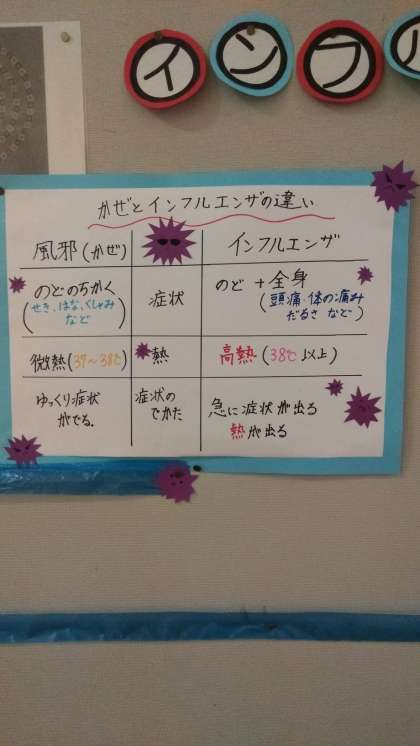 インフル
かぜとインフルエンザの違い
風邪(かぜ)
インフルエンザ
のどのちかく
(せき、はな、くしゃみ
など)
症状
のど+全身
(頭痛・体の痛み
だるさ など)
微熱(37~38℃)
熱
高熱(38℃以上)
ゆっくり症状
がでる.
症状の
でかた
急に症状が出る
熱が出る